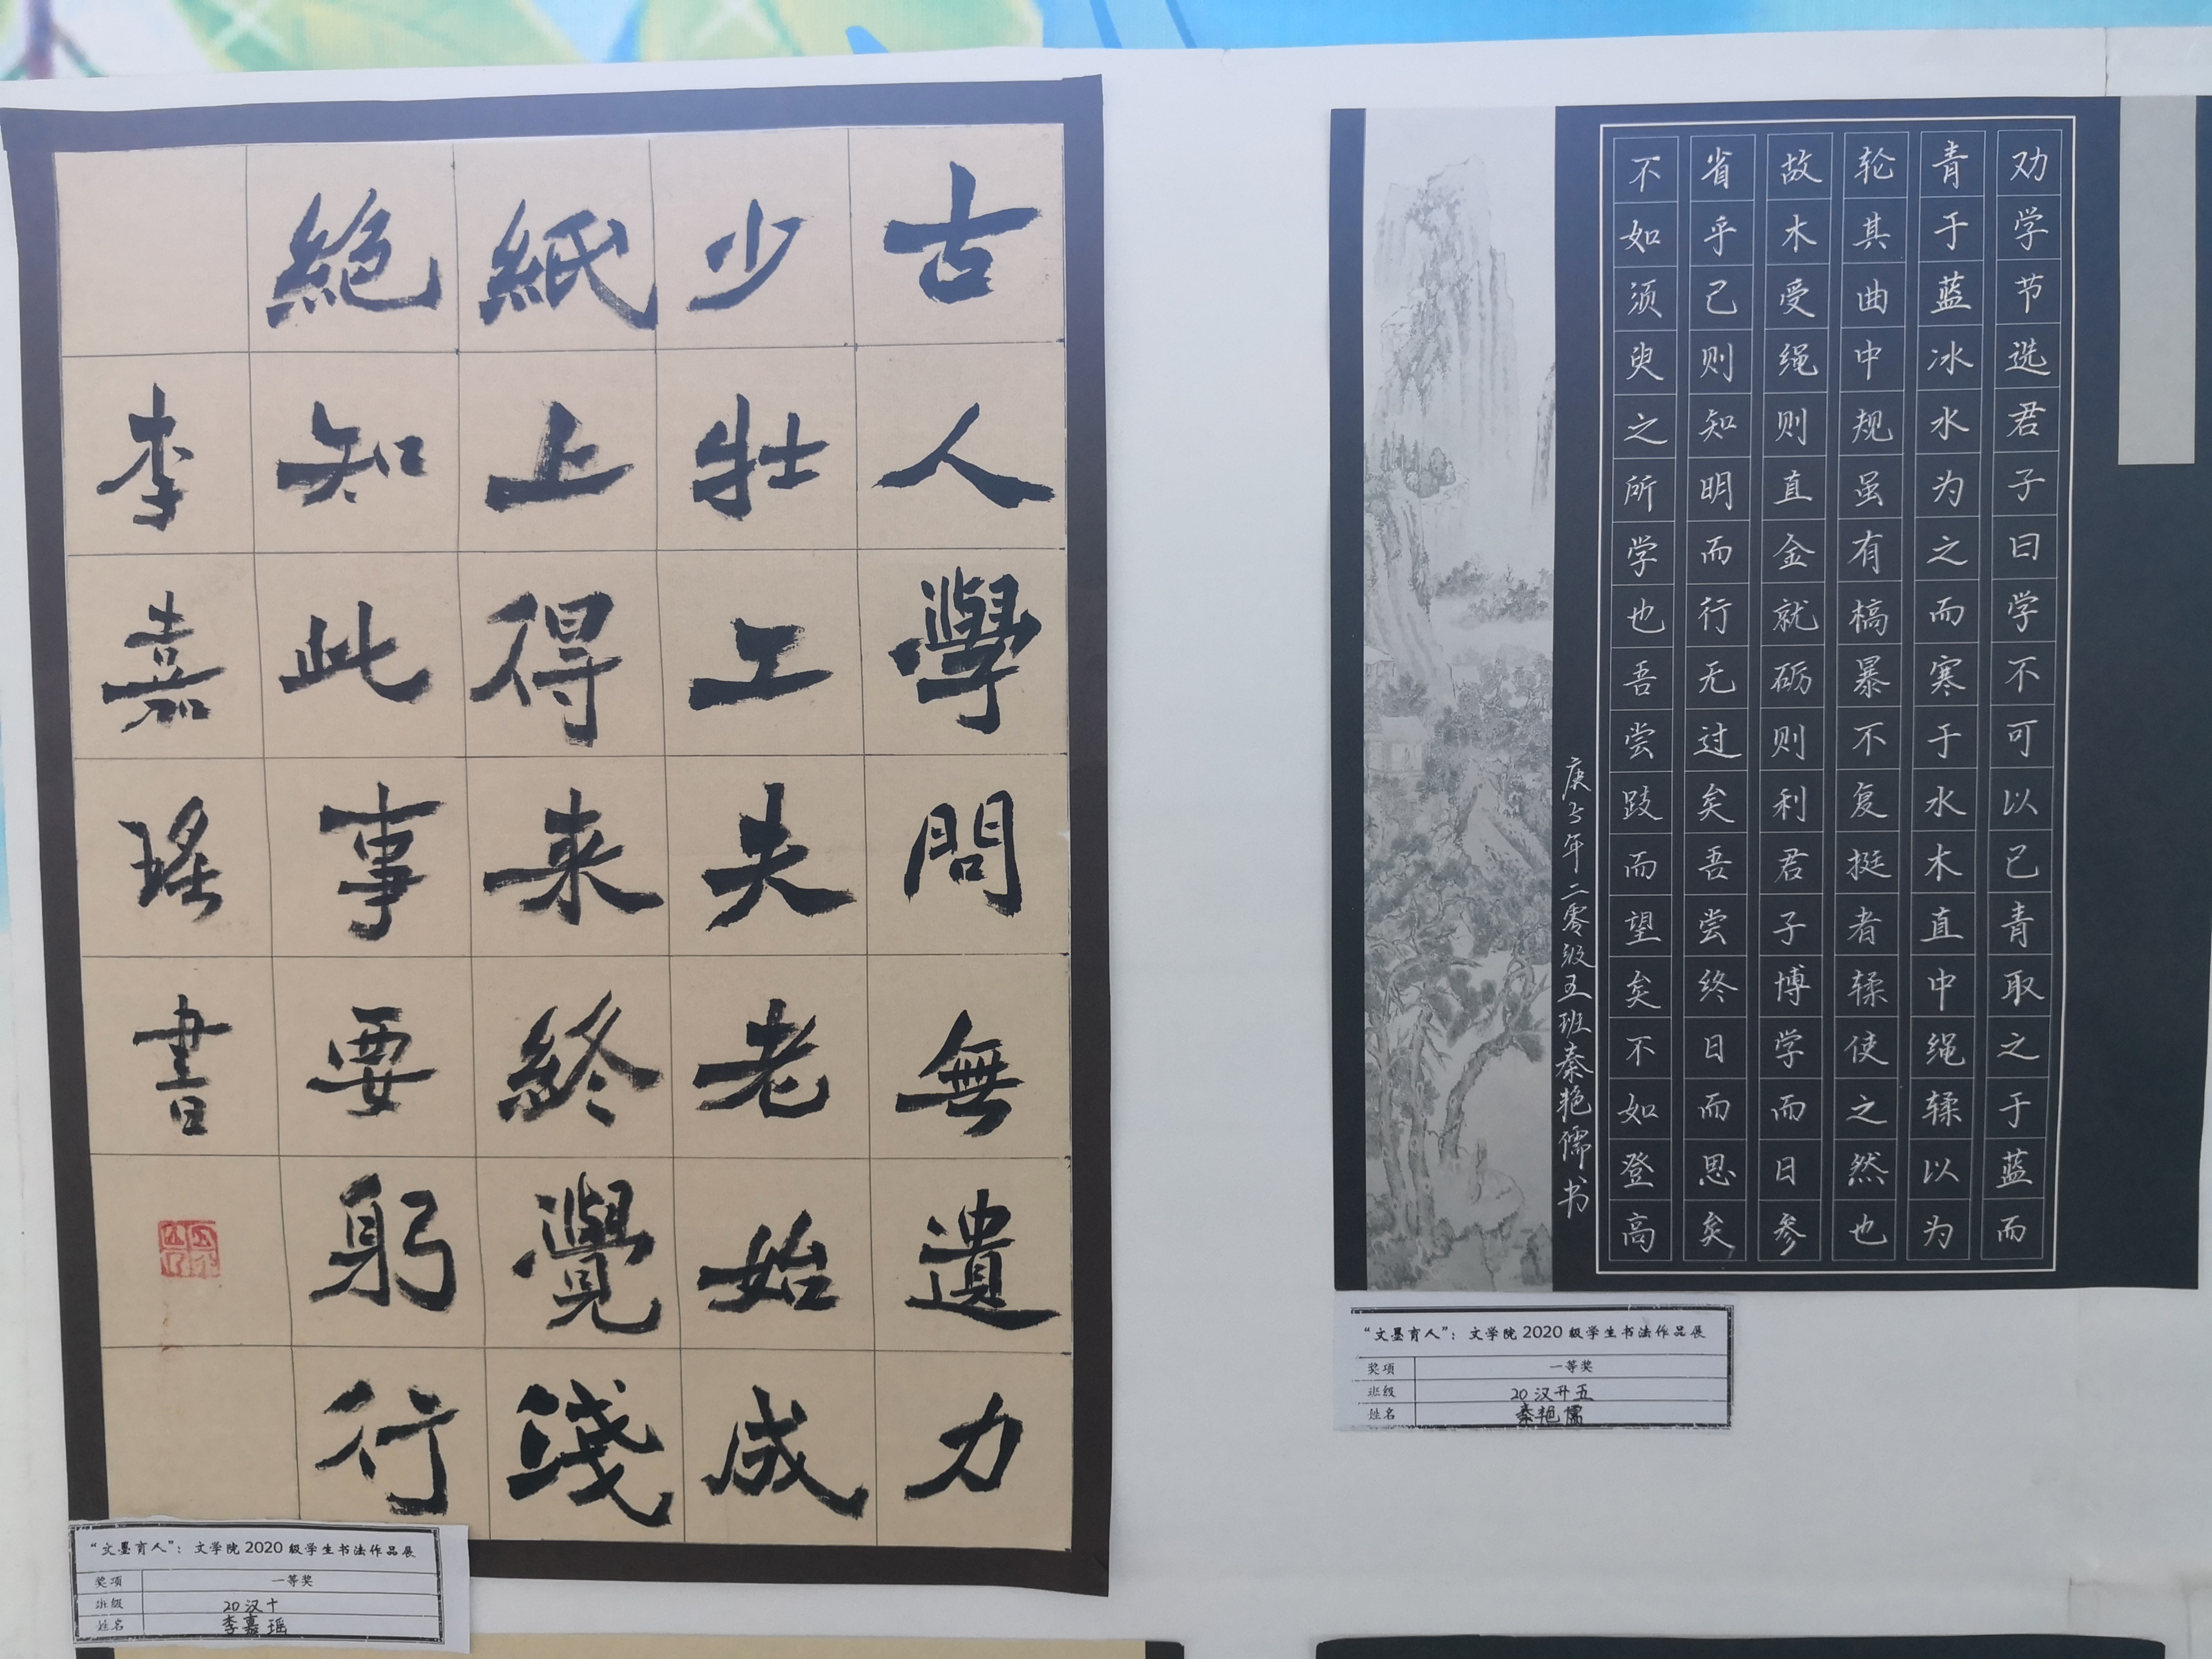 古人學問無遺力
少壯工夫老始成
紙上得来終覺淺
絶知此事要躬行
李嘉瑤書
“文墨育人”：文学院2020级学生书法作品展
奖项 一等奖
班级 20汉十
姓名 李嘉瑶
劝学节选君子曰学不可以已青取之于蓝而
青于蓝冰水为之而寒于水木直中绳𫐓以为
轮其曲中规虽有槁暴不复挺者𫐓使之然也
故木受绳则直金就砺则利君子博学而日参
省乎己则知明而行无过矣吾尝终日而思矣
不如须臾之所学也吾尝跂而望矣不如登高
庚子年二零级五班秦艳儒书
“文墨育人”：文学院2020级学生书法作品展
奖项 一等奖
班级 20汉升五
姓名 秦艳儒